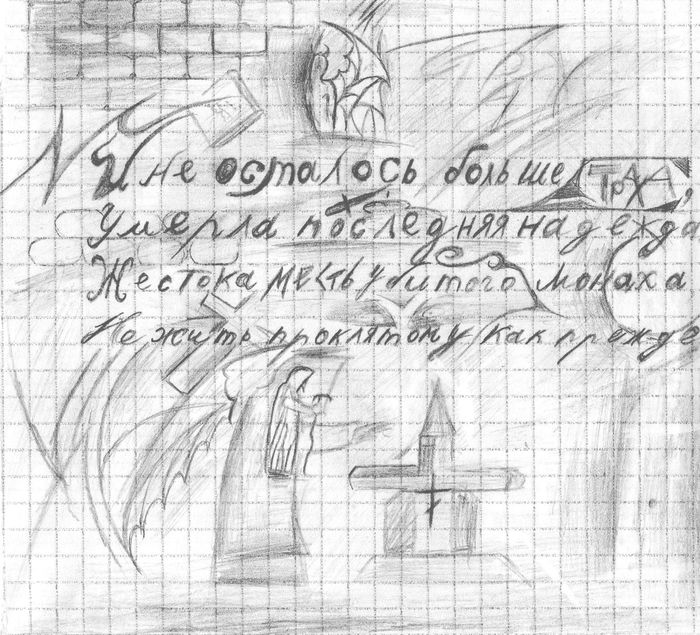 И не осталось больше СТРАХА,
Умерла последняя надежда
Жестока месть убитого монаха
Не жить проклятому как прежде